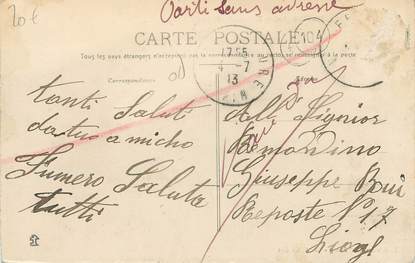 20€
Parti sans adresse
CARTE POSTALE
104
Tous les pays étrangers n'acceptent pas la correspondance au recto, se renseigner à la poste
Correspondance
17 55
4 - 7
13
tanti Saluti
da tuo amicho
Fumero Saluta
tutti
All' Signior
Bernardino
Giuseppe
Reposte N 17